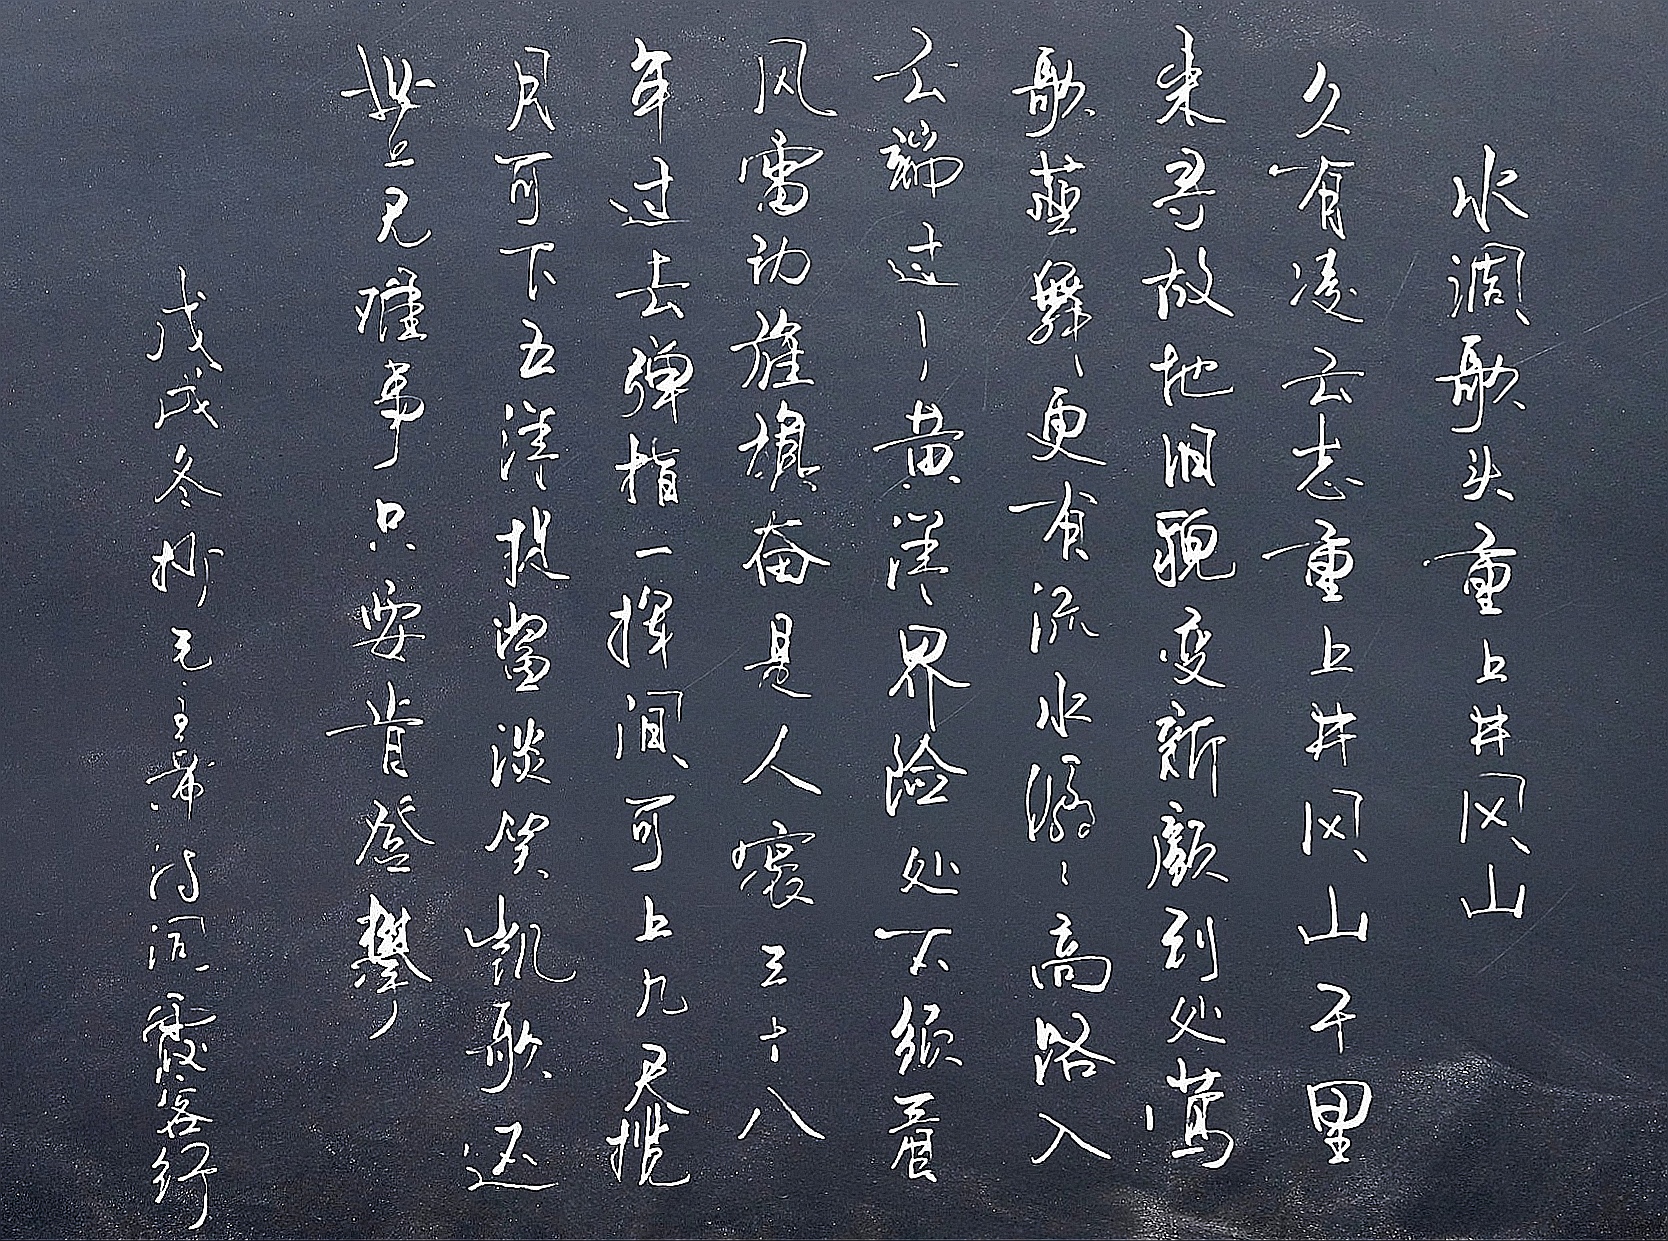 水调歌头重上井冈山
久有凌云志重上井冈山千里
来寻故地旧貌变新颜到处莺
歌燕舞更有流水潺潺高路入
云端过了黄洋界险处不须看
风雷动旌旗奋是人寰三十八
年过去弹指一挥间可上九天揽
月可下五洋捉鳖谈笑凯歌还
世上无难事只要肯登攀
戊戌冬抄毛主席诗词霞客行